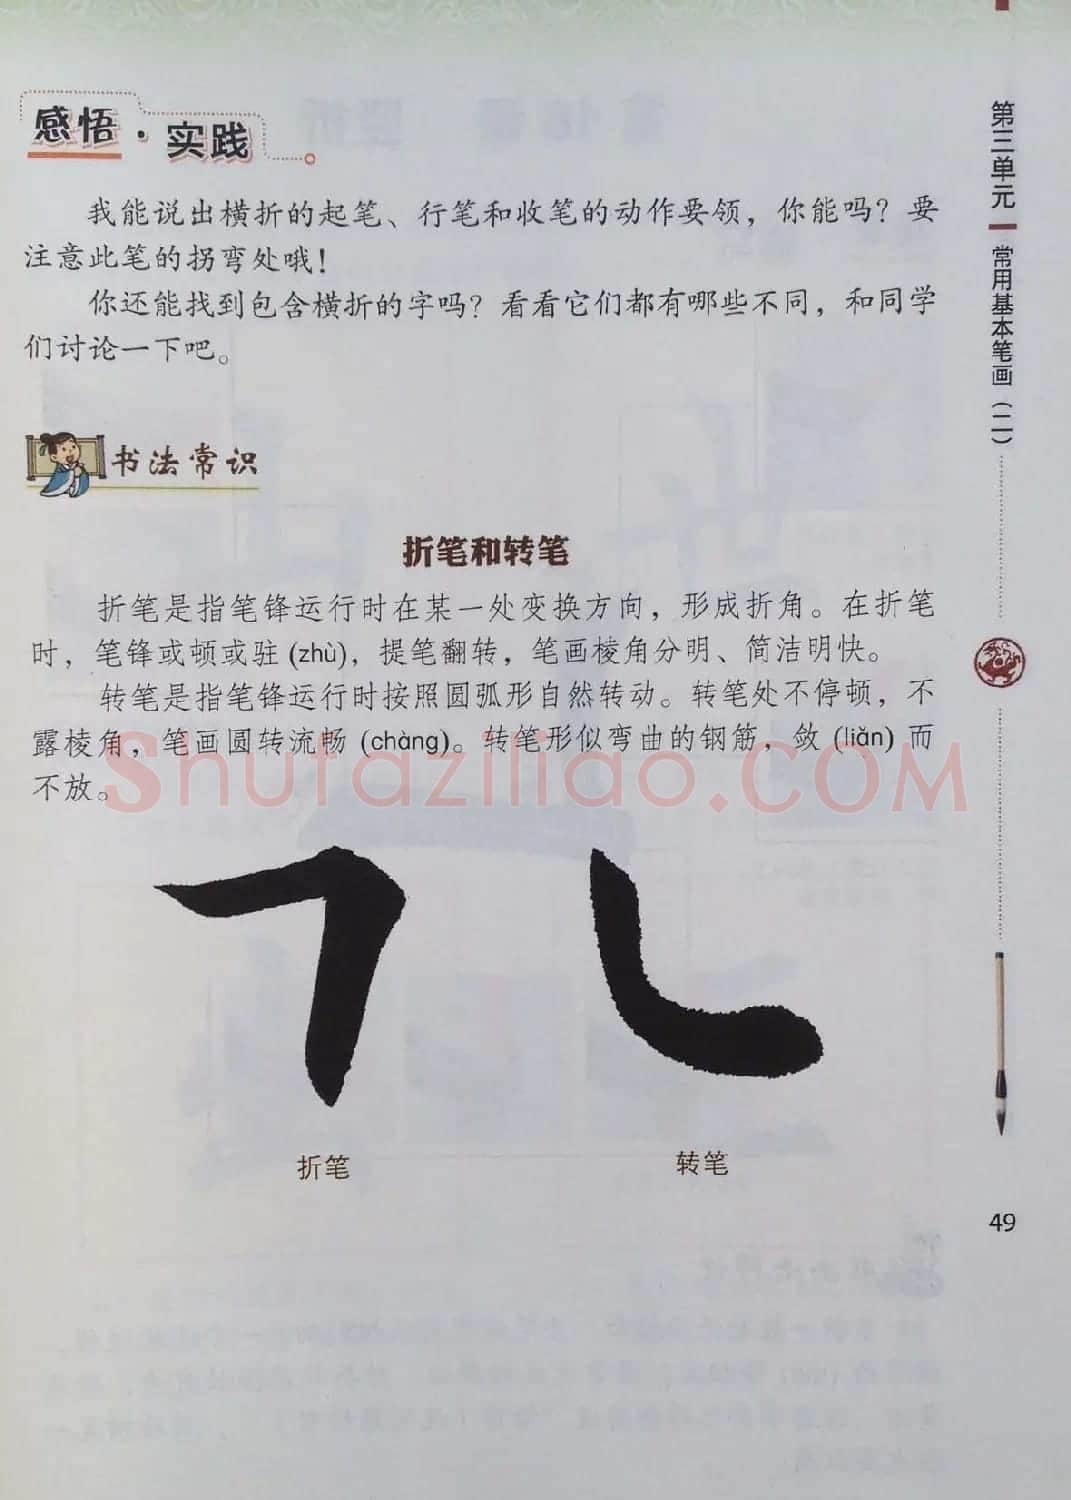 感悟·实践
我能说出横折的起笔、行笔和收笔的动作要领，你能吗？要
注意此笔的拐弯处哦！
你还能找到包含横折的字吗？看看它们都有哪些不同，和同学
们讨论一下吧。
书法常识
折笔和转笔
折笔是指笔锋运行时在某一处变换方向，形成折角。在折笔
时，笔锋或顿或驻 (zhù)，提笔翻转，笔画棱角分明、简洁明快。
转笔是指笔锋运行时按照圆弧形自然转动。转笔处不停顿，不
露棱角，笔画圆转流畅 (chàng)。转笔形似弯曲的钢筋，敛 (liǎn) 而
不放。
Shufaziliao.COM
折笔
转笔
第三单元 常用基本笔画（二）
49